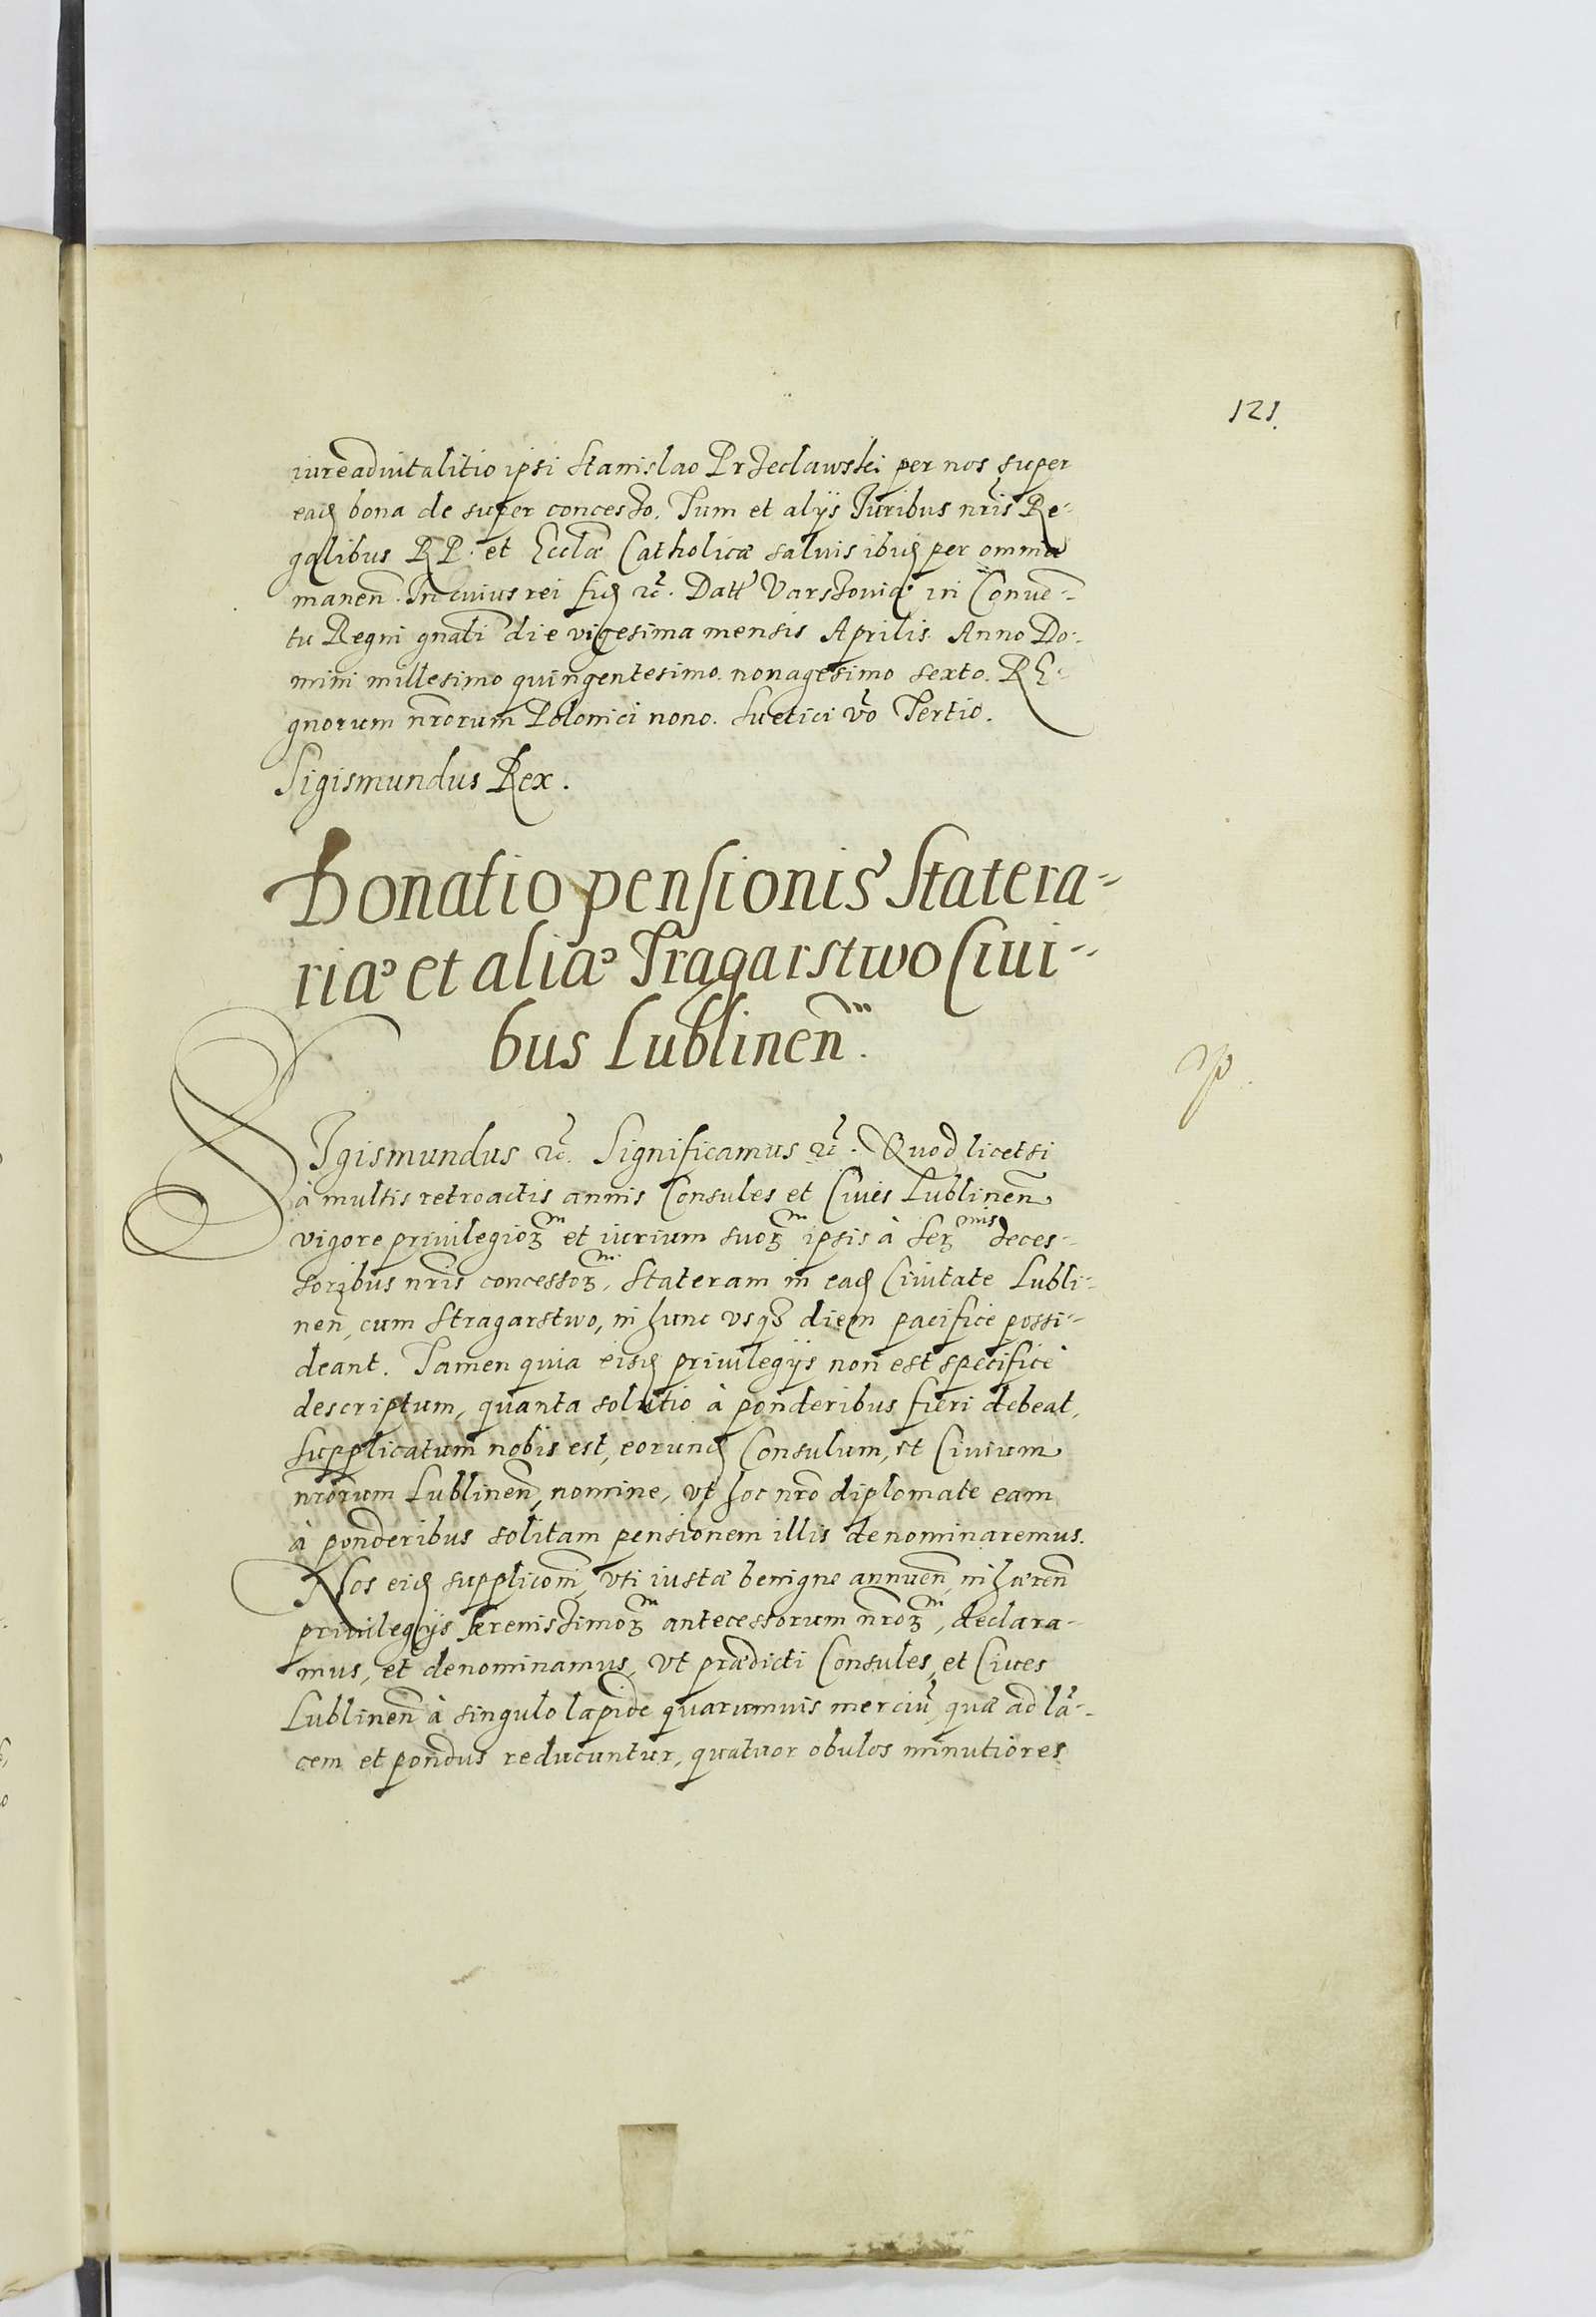 121.
iure aduitalitio ipsi Stanislao Przeclawski per nos super
eadȩ bona de super concesso. Tum et alijs Iuribus nr̃is Re-
galibus RP. et Eccl̃æ Catholicæ saluis ibidȩ per omnia
maneñ. In cuius rei fidȩ etc̃. Datt' Varssouiæ in Conue-
tu Regni gnãli die vigesima mensis Aprilis Anno Do-
mini millesimo quingentesimo nonagesimo sexto. RE-
gnorum nr̃orum Polonici nono. Suetici võ Tertio.
Sigismundus Rex.
Donatio pensionis Statera-
riæ et aliæ Tragarstwo Ciui-
bus Lublineñ.
SIgismundus etc̃. Significamus etc̃. Quod licetsi
à multis retroactis annis Consules et Ciues Lublineñ
vigore priuilegioꝝᵐ et iurium suoꝝᵐ ipsis à Serᵐⁱˢ deces-
soribus nr̃is concessoꝝᵐ, Stateram in eadȩ Ciuitate Lubli-
neñ, cum Stragarstwo, in hunc vsqꝫ diem pacifice possi-
deant. Tamen quia eisdȩ priuilegijs non est specificè
descriptum, quanta solutio à ponderibus fieri debeat,
supplicatum nobis est, eorundȩ Consulum, et Ciuium
nr̃orum Lublineñ, nomine, vt hoc nr̃o diplomate eam
à ponderibus solitam pensionem illis denominaremus.
Nos eidȩ supplicõni, vti iustæ benigne annueñ, inhæreñ
priuilegijs Serenissimoꝝᵐ antecessorum nr̃oꝝᵐ, declara-
mus, et denominamus, vt prædicti Consules, et Ciues
Lublineñ à singulo lapide quarumuis merciũ, quæ ad lã-
cem et pondus reducuntur, quatuor obulos minutiores